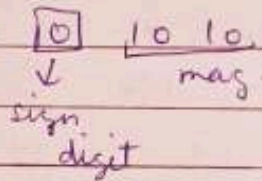 0 10 10.
mag
sign
digit